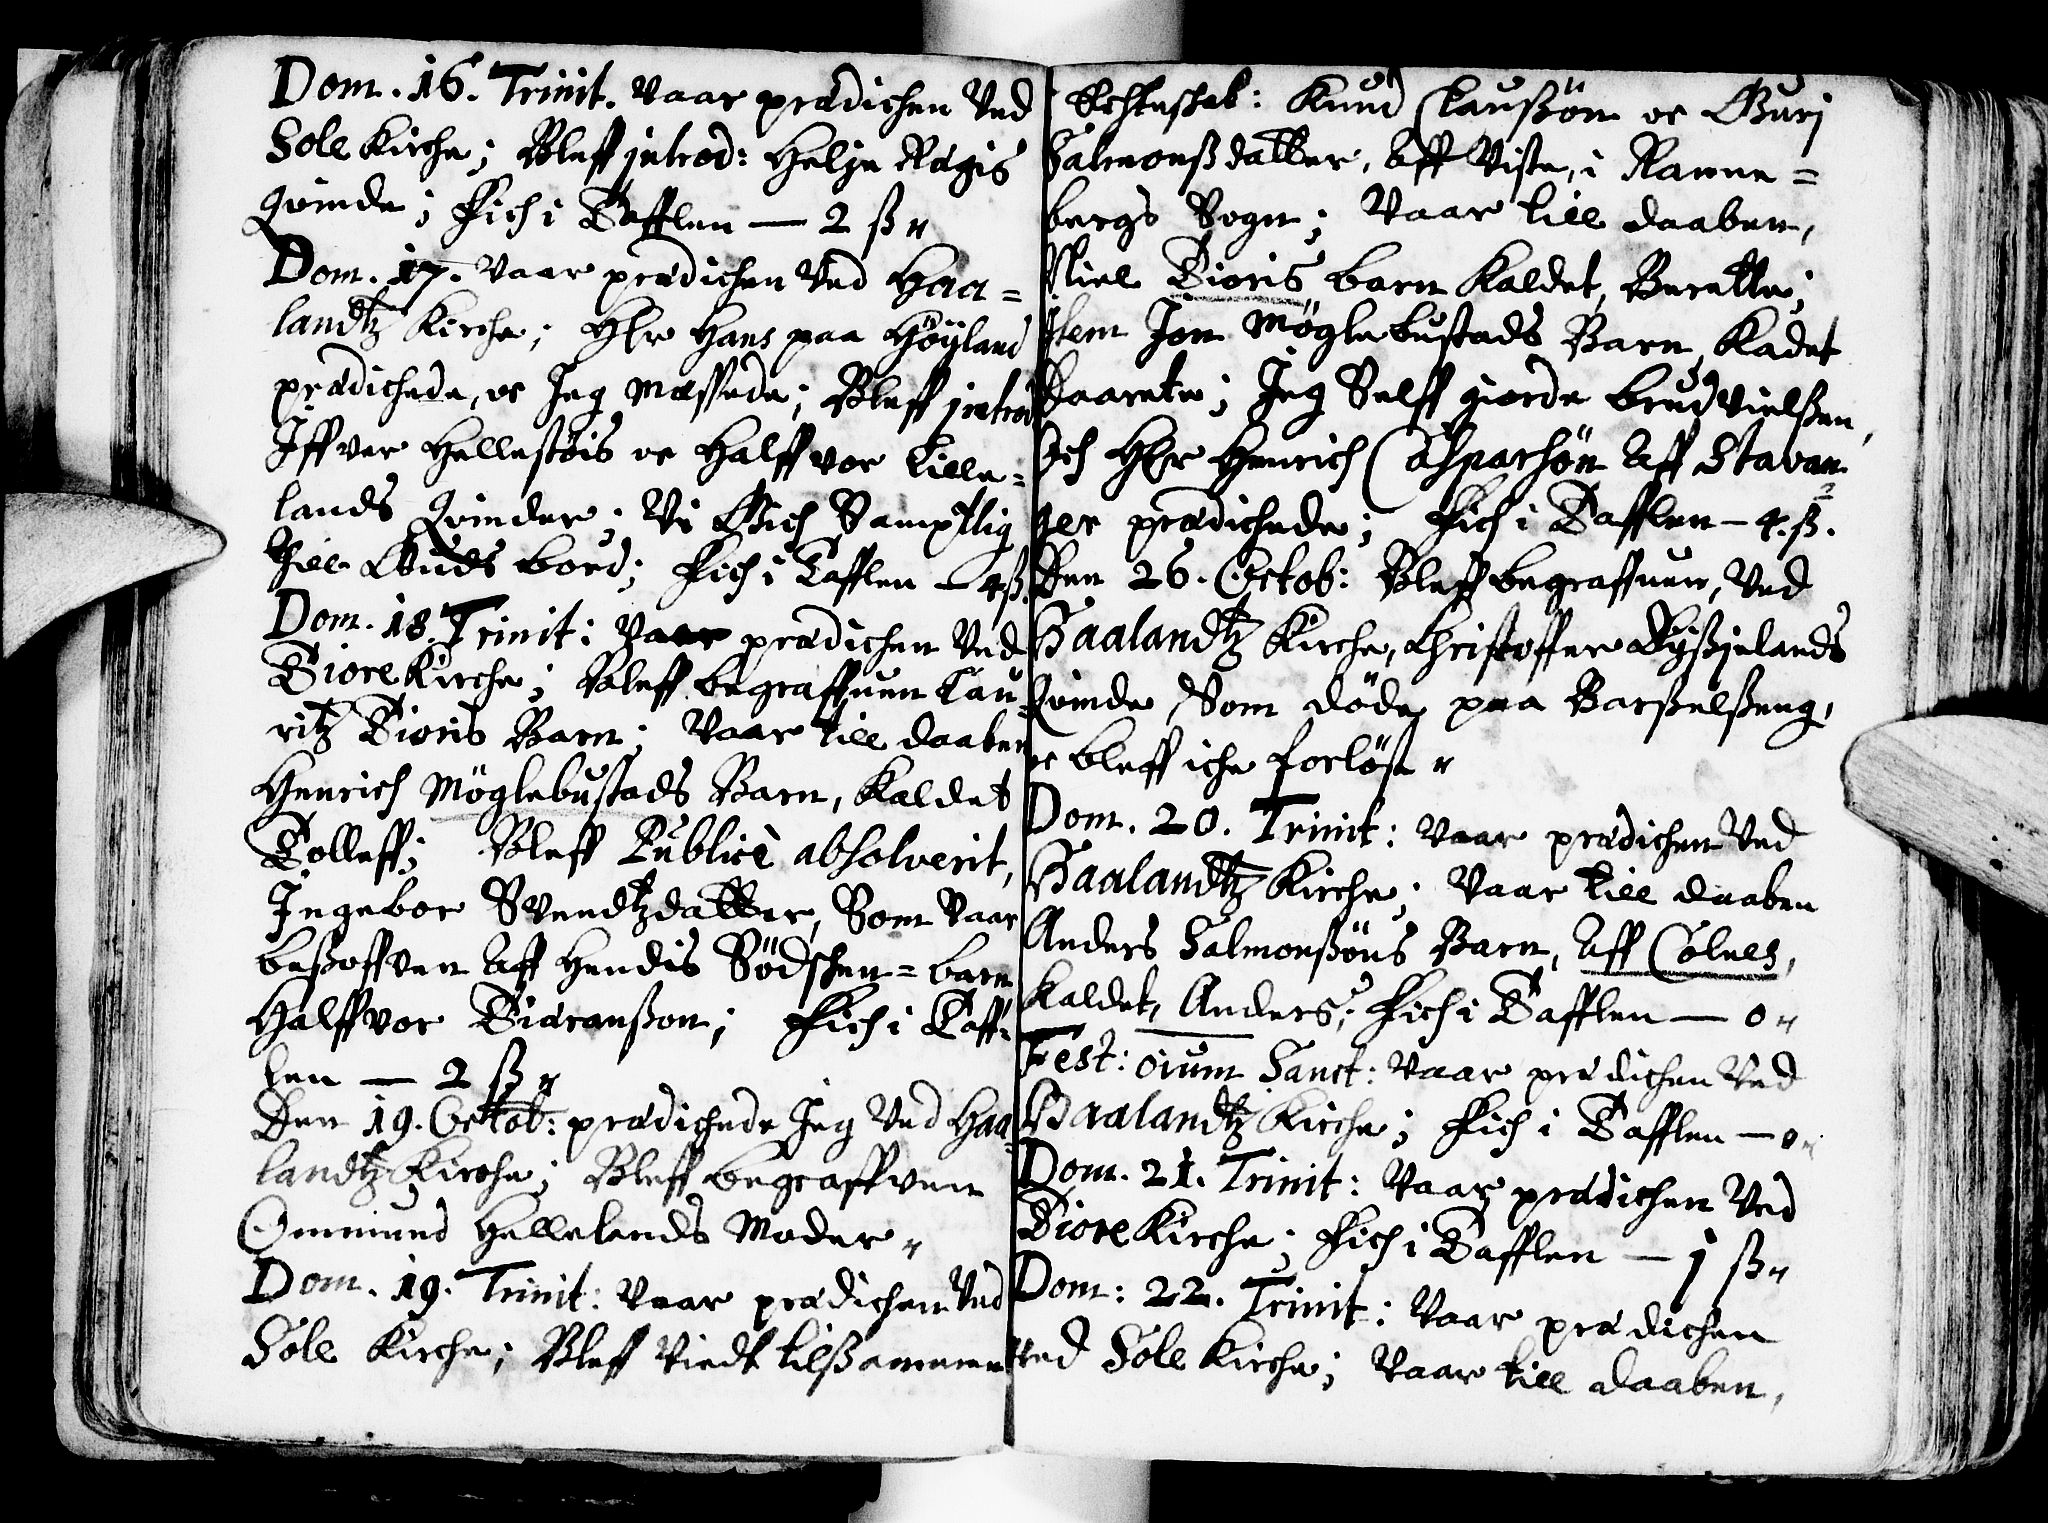 Dom. 16. Trinit. Vaar prædichen Ved
Sole Kirche; Bleff introd: Helje Rægis
Qvinde; Fich i Tafflen — 2 ß
Dom. 17. Vaar prædichen Ved Haa=
landtz Kirche; Her Hans paa Höÿland
prædichede, oc Jeg Messede; Bleff introd
Iffver Hellestöis oc Halffvor Lille=
lands Qvinder; Vi Gich Samptlig
Till Guds bord; Fich i Tafflen — 4 ß.
Dom. 18. Trinit: Vaar prædichen Ved
Tiore Kirche; Bleff begraffuen Lau=
ritz Tioris Barn; Vaar till daaben
Henrich Möglebustads Barn, Kaldet
Tolleff; Bleff Publicè absolverit,
Ingebor Svendtzdatter, Som Vaar
besoffven Aff Hendis Södschen=barn
Halffvor Tiaranßon; Fich i Taff=
len — 2 ß
Den 19. Octob: prædichede Jeg Ved Haa=
landtz Kirche; Bleff begraffven
Ommund Hellelands Moder
Dom. 19. Trinit: Vaar prædichen Ved
Sole Kirche; Bleff Viedt tilsammen
Echteskab: Knud Claußön oc Guri
Salmonßdatter, Aff Viste, i Ranne=
bergs Sogn; Vaar till daaben,
Niel Tioris barn Kaldet, Berette;
Item Jon Möglebustads Barn, Kadet
Daarete; Jeg Selff giorde brudvielßen,
Och Her Henrich Casparsön Aff Stavan=
ger prædichede; Fich i Tafflen — 4. ß.
Den 26. Octob: Bleff begraffuen, Ved
Haalandtz Kirche, Christoffer Dÿßjelands
Qvinde, Som döde paa Barßelßeng,
oc bleff iche forlöst
Dom. 20. Trinit: Vaar prædichen Ved
Haalandtz Kirche; Vaar till daaben
Anders Salmonßöns Barn, Aff Colnes,
Kaldet, Anders; Fich i Tafflen — 0
Fest: oium Sanct: Vaar prædichen Ved
Haalandtz Kirche; Fich i Tafflen — 0
Dom. 21. Trinit: Vaar prædichen Ved
Tiore Kirche; Fich i Tafflen — 1 ß
Dom: 22. Trinit: Vaar prædichen
Ved Sole Kirche; Vaar till daaben,